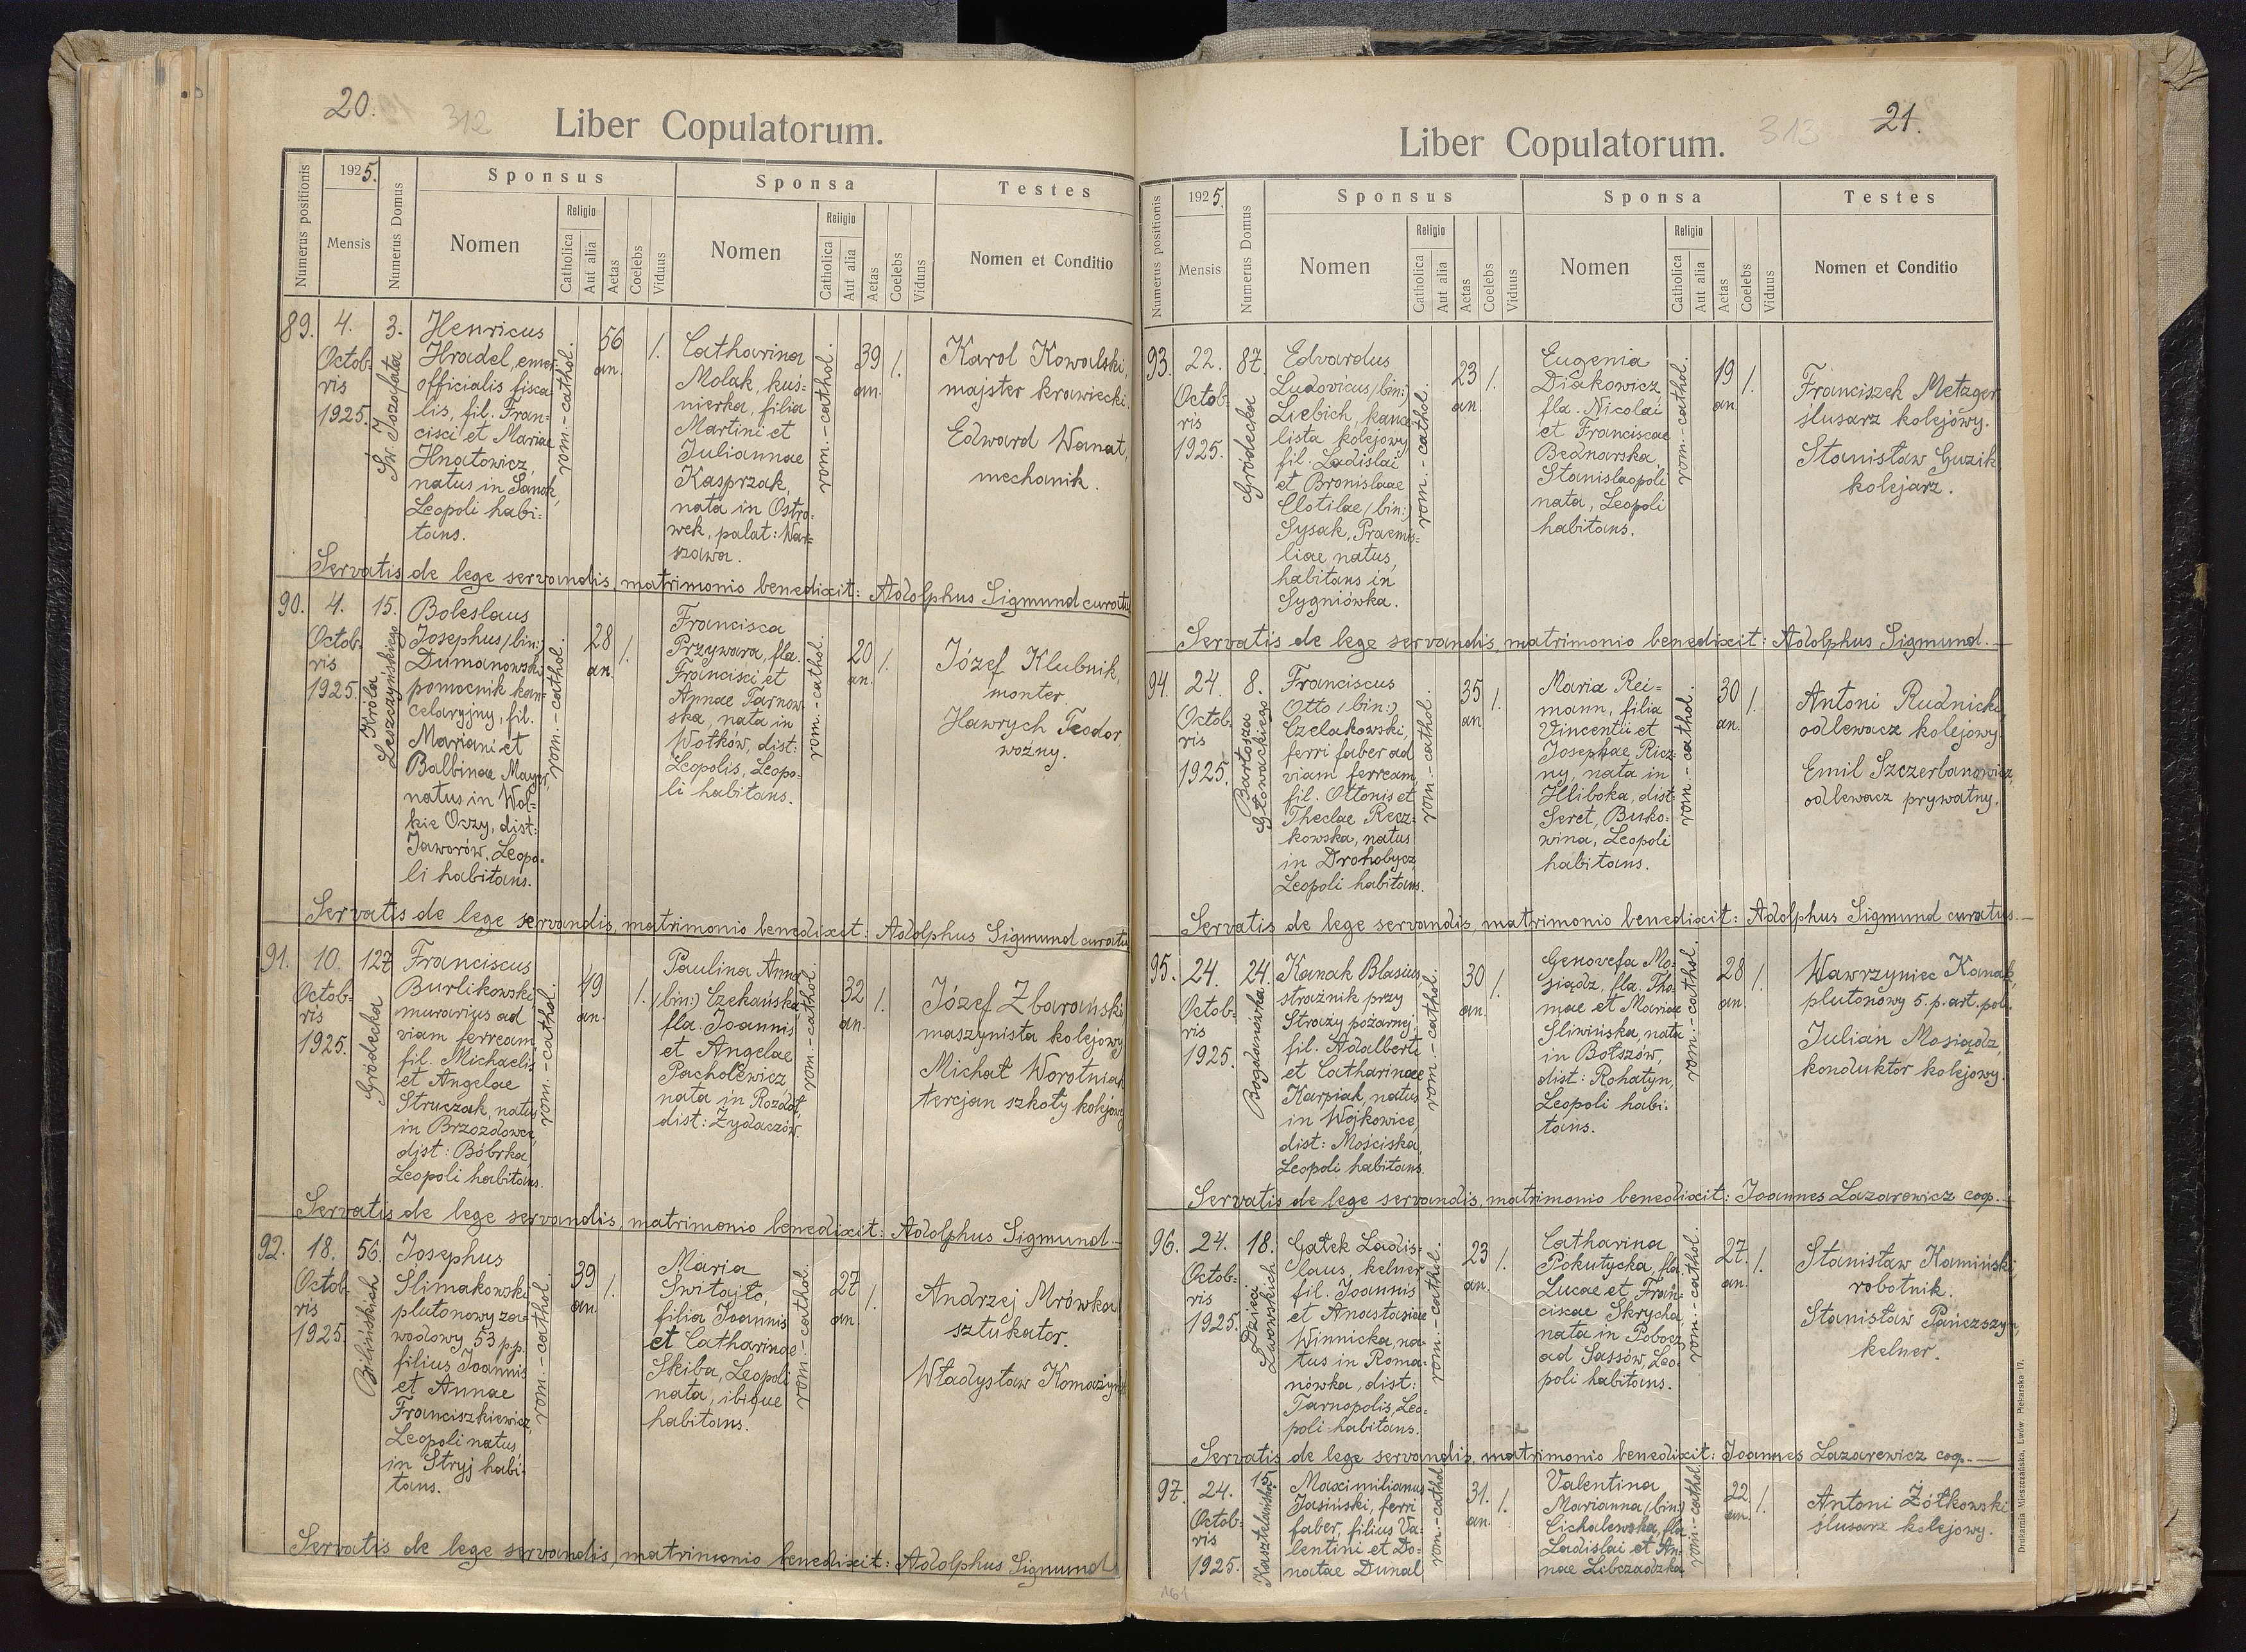 20.
312
Liber Copulatorum.
Numerus positionis
1925.
Mensis
Numerus Domus
Sponsus
Nomen
Religio
Catholica
Aut alia
Aetas
Coelebs
Viduus
Sponsa
Nomen
Religio
Catholica
Aut alia
Aetas
Coelebs
Viduus
Testes
Nomen et Conditio
89.
4.
Octob-
ris
1925.
3.
Św. Jozafata
Henricus
Hradel, emer.
officialis fisca
lis, fil. Fran=
cisci et Mariae
Hnatowicz,
natus in Sanok,
Leopoli habi:
tans.
rom.-cathol.
56
an.
1.
Catharina
Molak, kuś=
nierka, filia
Martini et
Juliannae
Kasprzak,
nata in Ostro=
wek, palat: War=
szawa.
rom.-cathol.
39
an.
1.
Karol Kowalski,
majster krawiecki.
Edward Wanat,
mechanik.
Servatis de lege servandis, matrimonio benedixit: Adolphus Sigmund curatus
90.
4.
Octob-
ris
1925.
15.
Króla
Leszczyńskiego
Boleslaus
Josephus (bin:)
Dumanowski
pomocnik kan=
celaryjny, fil.
Mariani et
Balbinae Mayer,
natus in Wol-
kie Oczy, dist:
Jaworów, Leopo-
li habitans.
rom.-cathol.
28
an.
1.
Francisca
Przywara, fla.
Francisci et
Annae Tarnow
ska, nata in
Wołków, dist:
Leopolis, Leopo-
li habitans.
rom.-cathol.
20
an.
1.
Józef Klubnik,
monter.
Hawrych Teodor
woźny.
Servatis de lege servandis, matrimonio benedixit: Adolphus Sigmund curatus
91.
10.
Octob-
ris
1925.
127
Gródecka
Franciscus
Burlikowski
murarius ad
viam ferream,
fil. Michaelis
et Angelae
Struczak, natus
in Brzozdowce,
dist: Bóbrka,
Leopoli habitans.
rom.-cathol.
49
an.
1.
Paulina Anna
(bin:) Czekańska
fla. Joannis
et Angelae
Pacholewicz
nata in Rozdół,
dist: Żydaczów.
rom.-cathol.
32
an.
1.
Józef Zbarański
maszynista kolejowy
Michał Worotniak
tercjan szkoły kolejowej
Servatis de lege servandis, matrimonio benedixit: Adolphus Sigmund
92.
18.
Octob.
ris
1925.
56.
Bilińskich
Josephus
Ślimakowski
plutonowy za=
wodowy 53 p.p.
filius Joannis
et Annae
Franciszkiewicz,
Leopoli natus,
in Stryj habi-
tans.
rom.-cathol.
39
an.
1.
Maria
Świtajło,
filia Joannis
et Catharinae
Skiba, Leopoli
nata, ibique
habitans.
rom.-cathol.
27
an.
1.
Andrzej Mrówka
sztukator.
Władysław
Servatis de lege servandis, matrimonio benedixit: Adolphus Sigmund
21.
313
Liber Copulatorum.
Numerus positionis
1925.
Mensis
Numerus Domus
Sponsus
Nomen
Religio
Catholica
Aut alia
Aetas
Coelebs
Viduus
Sponsa
Nomen
Religio
Catholica
Aut alia
Aetas
Coelebs
Viduus
Testes
Nomen et Conditio
93.
22.
Octob-
ris
1925.
87.
Gródecka
Edvardus
Ludovicus (bin:)
Liebich, kance
lista kolejowy
fil. Ladislai
et Bronislaae
Clotilae (bin:)
Sysak, Praemis-
liae natus,
habitans in
Sygniówka.
rom.-cathol.
23
an.
1.
Eugenia
Diakowicz
fla. Nicolai
et Franciscae
Bednarska,
Stanislaopoli
nata, Leopoli
habitans.
rom.-cathol.
19
an.
1.
Franciszek Metzger
ślusarz kolejowy.
Stanisław Guzik
kolejarz.
Servatis de lege servandis, matrimonio benedixit: Adolphus Sigmund.
94.
24.
Octob-
ris
1925.
8.
Bartosza
Głowackiego
Franciscus
Otto (bin:)
Czelakowski,
ferri faber ad
viam ferream,
fil. Ottonis et
Theclae Recz-
kowska, natus
in Drohobycz,
Leopoli habitans.
rom.-cathol.
35
an.
1.
Maria Rei=
mann, filia
Vincentii et
Josephae, Ricz-
ny, nata in
Hliboka, dist:
Seret, Buko-
wina, Leopoli
habitans.
rom.-cathol.
30
an.
1.
Antoni Rudnicki,
odlewacz kolejowy.
Emil Szczerbanowicz,
odlewacz prywatny.
Servatis de lege servandis, matrimonio benedixit: Adolphus Sigmund curatus.
95.
24.
Octob-
ris
1925.
24.
Bogdanówka
Kanak Blasius
strażnik przy
Straży pożarnej,
fil. Adalberti
et Catharinae
Karpiak, natus
in Wojkowice,
dist: Mościska,
Leopoli habitans.
rom.-cathol.
30
an.
1.
Genovefa Mo-
siądz, fla. Tho-
mae et Mariae
Śliwińska, nata
in Bołszów,
dist: Rohatyn,
Leopoli habi-
tans.
rom.-cathol.
28
an.
1.
Wawrzyniec Kanak,
plutonowy 5. p. art. pol.
Julian Mosiądz,
konduktor kolejowy.
Servatis de lege servandis, matrimonio benedixit: Joannes Lazarewicz cop.
96.
24.
Octob-
ris
1925.
18.
Dzieci
Lwowskich
Gałek Ladis-
laus, kelner,
fil. Joannis
et Anastasiae
Winnicka, na-
tus in Roma-
nówka, dist:
Tarnopolis, Leo-
poli habitans.
rom.-cathol.
23
an.
1.
Catharina
Pokutycka, fla.
Lucae et Fran-
ciscae Skrycha,
nata in Pobocz
ad Sassów, Leo-
poli habitans.
rom.-cathol.
27.
an.
1.
Stanisław Kamiński
robotnik.
Stanisław Pańczszyn,
kelner.
Servatis de lege servandis, matrimonio benedixit: Joannes Lazarewicz cop.
97.
24.
Octob-
ris
1925.
15
Kasztelańska
Maximilianus
Jasiński, ferri
faber, filius Va-
lentini et Do-
natae Dunal
rom.-cathol.
31.
an.
1.
Valentina
Marianna (bin:)
Cichalewska, fla.
Ladislai et An-
nae
rom.-cathol.
22
an.
1.
Antoni Żółkowski
ślusarz kolejowy.
161
Drukarnia Mieszczańska, Lwów Piekarska 17.